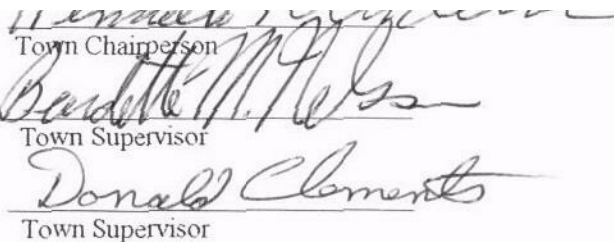 Kenneth
Town Chairperson
Burdette M. Nelson
Town Supervisor
Donald Clements
Town Supervisor